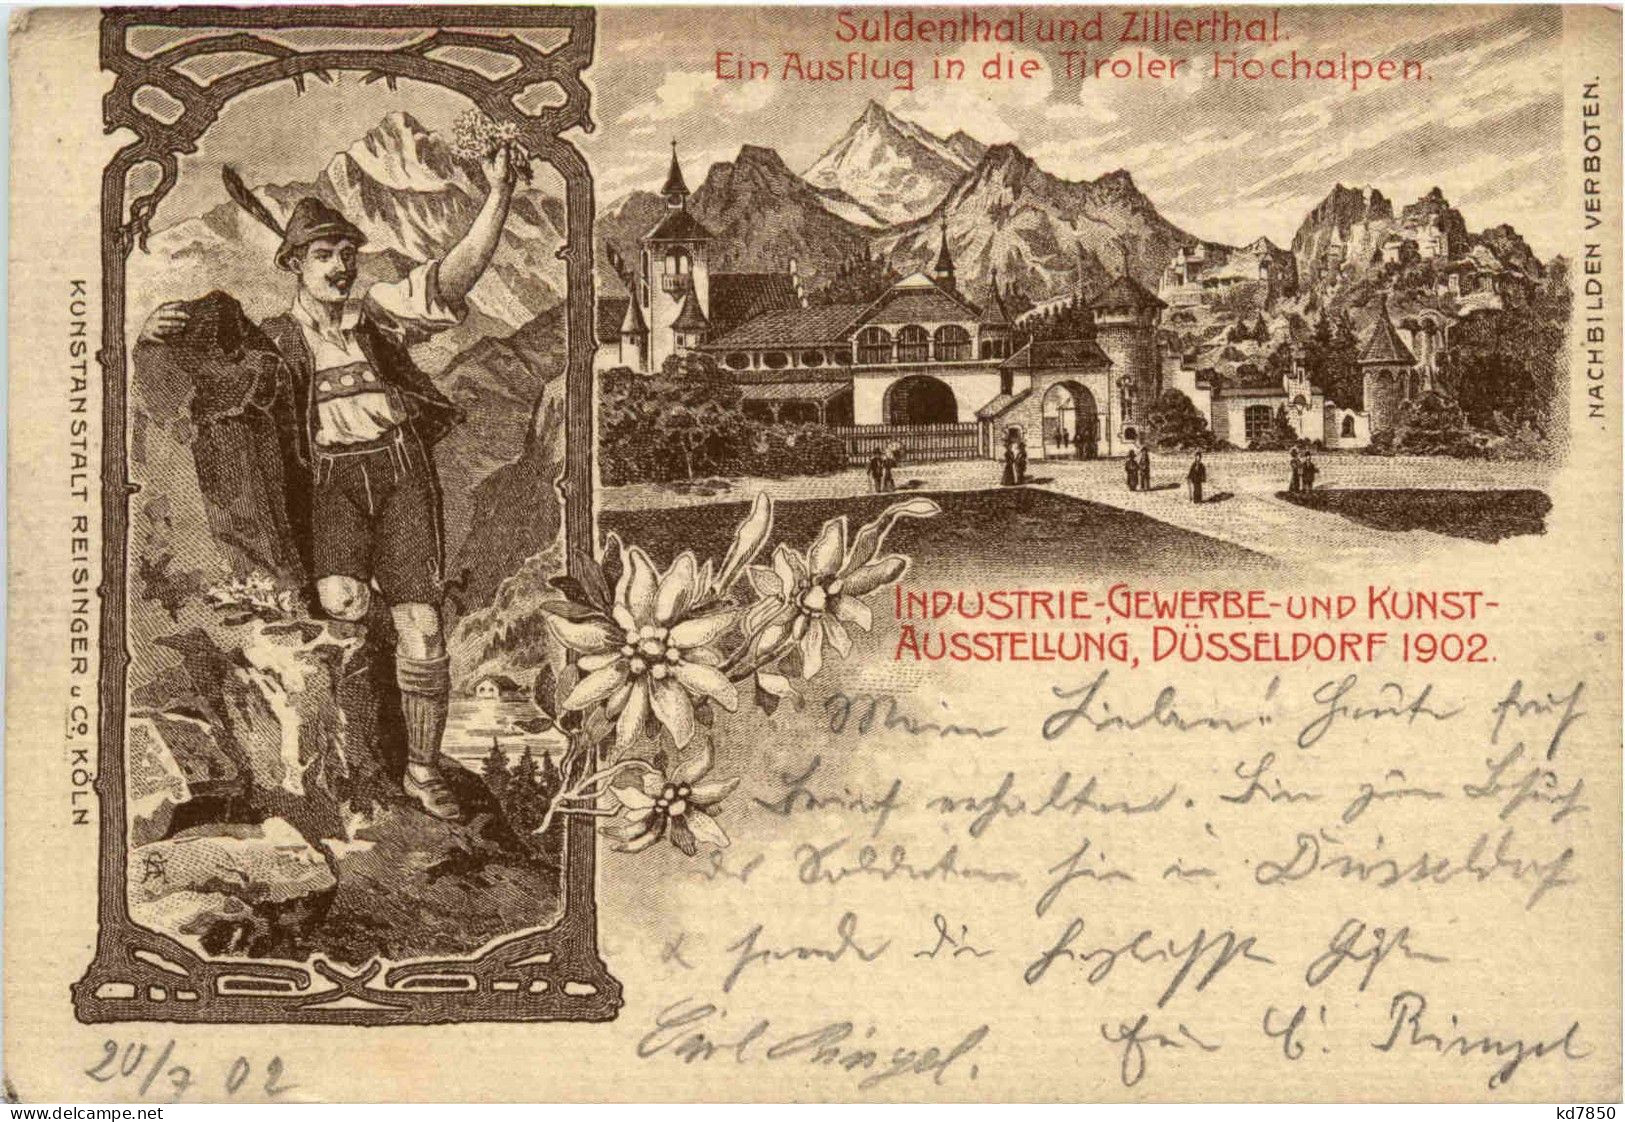 Suldenthal und Zillerthal.
Ein Ausflug in die Tiroler Hochalpen.
NACHBILDEN VERBOTEN.
KUNSTANSTALT REISINGER u. Co., KÖLN
INDUSTRIE-, GEWERBE- UND KUNST-
AUSSTELLUNG, DÜSSELDORF 1902.
Meine Lieben! Heute früh
Brief erhalten. Bin zum Besuch
der Soldaten hier in Düsseldorf
& sende die herzlichste Grüße
Carl Ringel.
20/7 02
delcampe.net
kd7850